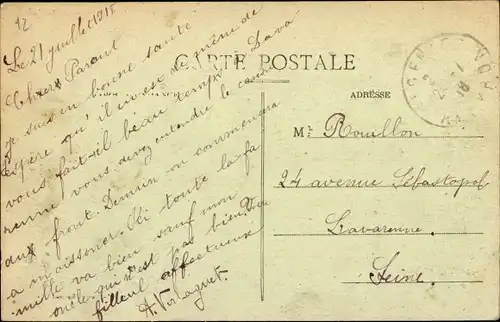 12
Le 21 juillet 1915
Chers Parent
Je suis en bonne santé
espère qu'il en est de même de
vous fait-il beau temps à Lava
renne vous devez entendre le canon
aux front. Demain on commencera
a moissonner. Ici toute la fa
mille va bien sauf mon
oncle qui n'est pas bien. Votre
filleul affectueuse
CARTE POSTALE
ADRESSE
Mr Rouillon
24 avenue Sébastopol
Lavarenne
Seine.